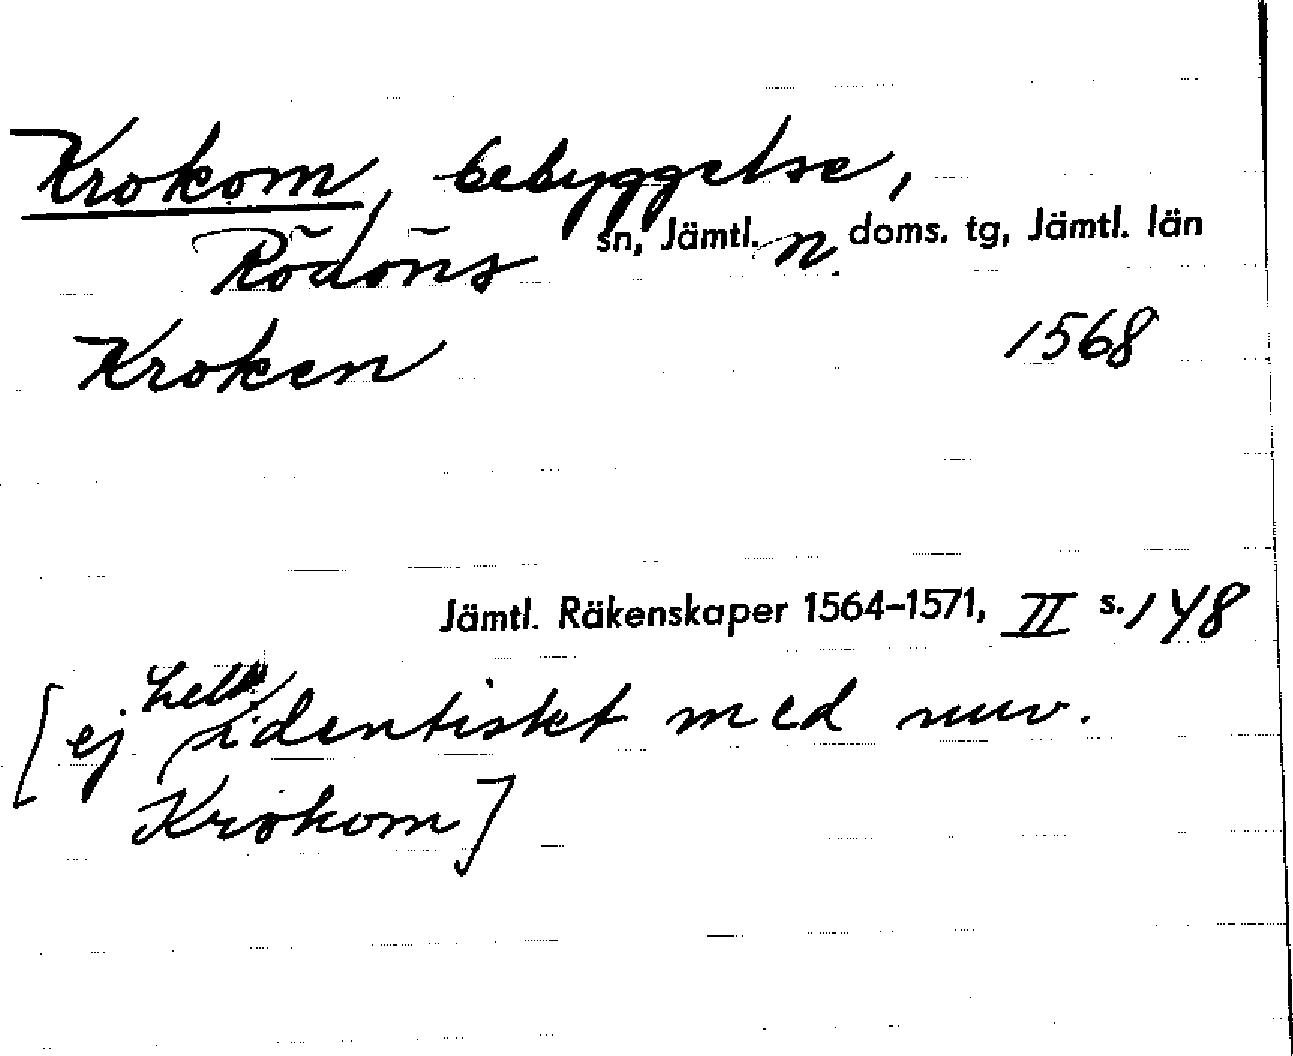 Krokom, bebyggelse,
Rödöns sn, Jämtl. n. doms. tg, Jämtl. län
Kroken 1568
Jämtl. Räkenskaper 1564–1571, II s. 148
[ej helt identiskt med nuv.
Krokom]